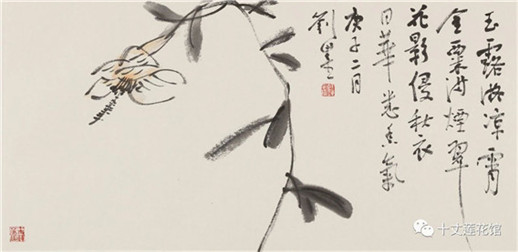 玉露滋凉霄
金粟满煙翠
花影侵秋衣
日華卷香氣
庚子二月
劉墨
十丈莲花馆